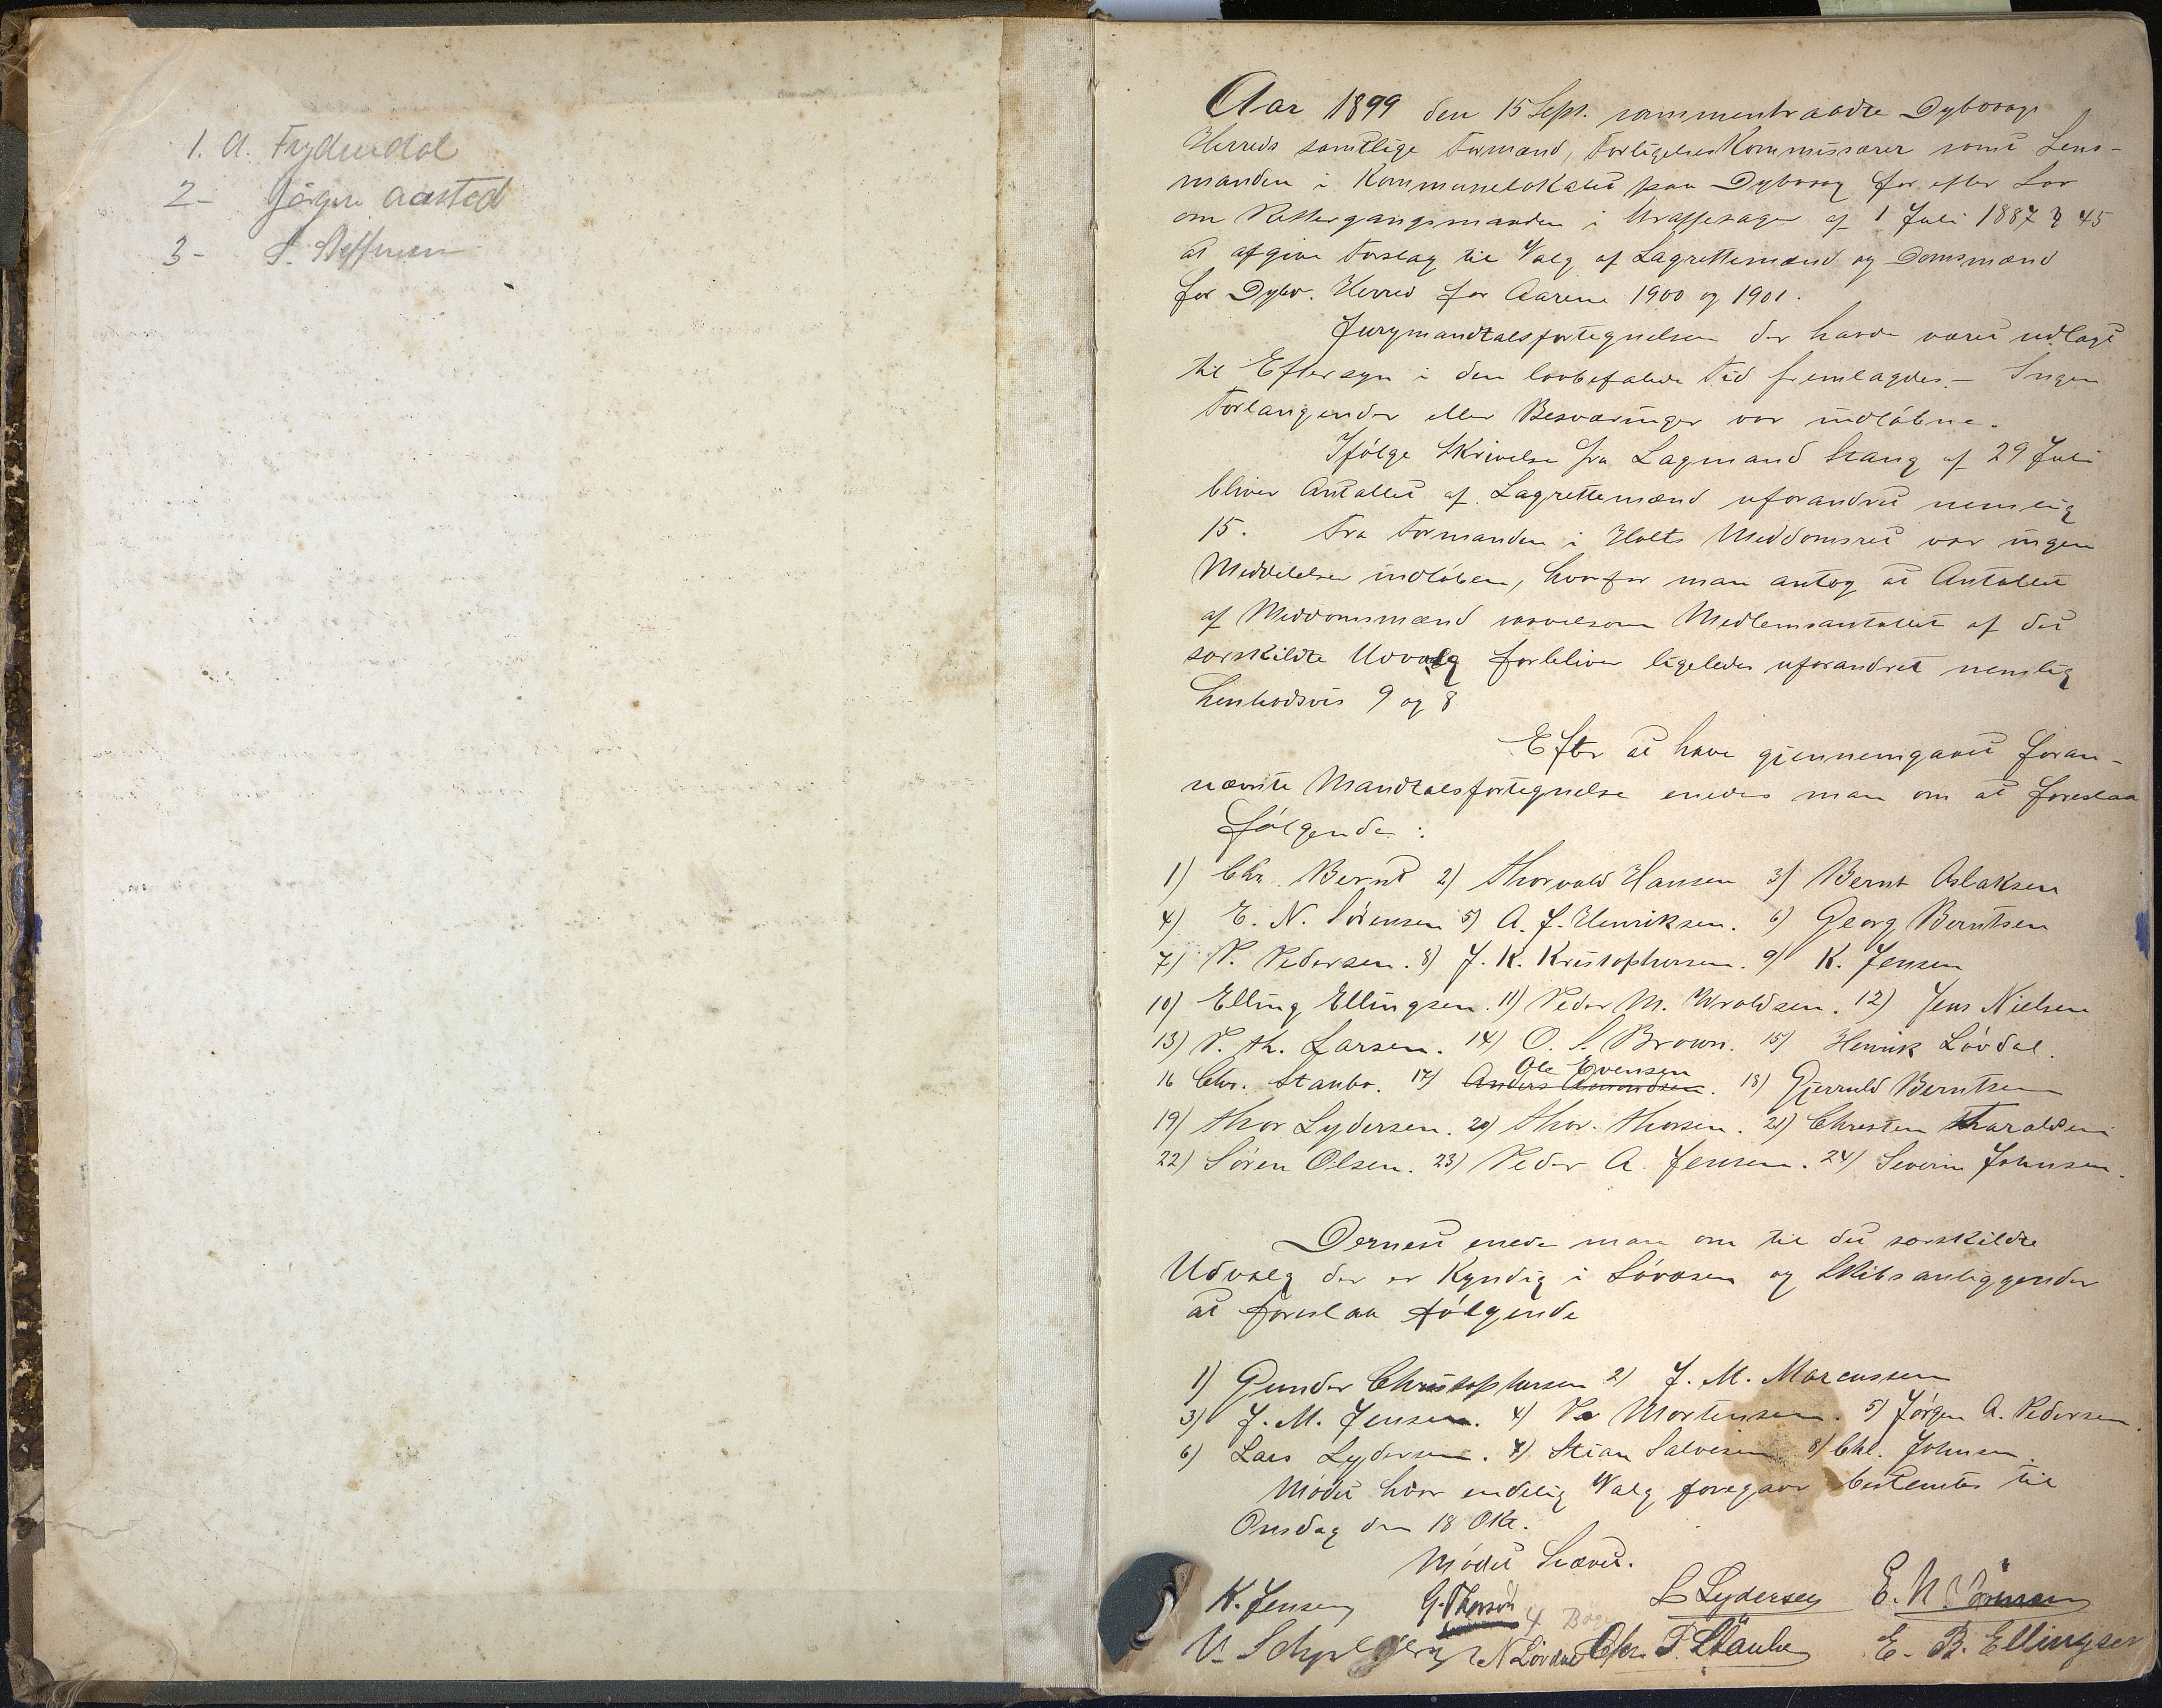 1. A. Frydendal
2- Jörgen Aasted
3- S. Steffensen
Aar 1899 den 15 Sept. sammentraadte Dybvaags
Herreds samtlige Formænd, Forligelseskommissærer samt Lens-
manden i Kommunelokalet paa Dybvaag for efter Lov
om Rettergangsmaaden i Straffesager af 1 Juli 1887 § 45
at afgive Forslag til Valg af Lagrettemænd og Domsmænd
for Dybv. Herred for Aarene 1900 og 1901.
Jurymandtalsfortegnelsen der havde været udlagt
til Eftersyn i den lovbefalede Tid fremlagdes. - Ingen
Forlangender eller Besværinger var indløbne.
Ifølge Skrivelse fra Lagmand Stang af 29 Juli
bliver Antallet af Lagrettemænd uforandret nemlig
15. Fra Formanden i Holts Meddomsret var ingen
Meddelelse indløben, hvorfor man antog at Antallet
af Meddomsmænd saavelsom Medlemsantallet af det
særskildte Udvalg forbliver ligeledes uforandret nemlig
henholdsvis 9 og 8
Efter at have gjennemgaaet foran-
nævnte Mandtalsfortegnelse enedes man om at foreslaa
følgende:
1) Chr. Bernt 2) Thorvald Hansen 3) Bernt Aslaksen
4) E. N. Sørensen 5) A. J. Henriksen. 6) Georg Berntsen
7) P. Pedersen. 8) J. K. Kristophersen. 9) K. Jensen
10) Elling Ellingsen. 11) Peder M. Wroldsen. 12) Jens Nielsen
13) P. Th. Larsen. 14) O. S. Brown. 15) Henrik Løvdal.
Ole Evensen
16 Chr. Staubo. 17) Anders Amondsen. 18) Gjerruld Berntsen
19) Thor Lydersen. 20) Thor. Thorsen. 21) Christen Tharaldsen
22) Søren Olsen. 23) Peder A. Jensen. 24) Severin Johnsen.
Dernest enedes man om til det særskildte
Udvalg der er Kyndig i Søvæsen og Skibsanliggender
at foreslaa følgende
1) Gunder Christophersen 2) J. M. Marcussen
3) J. M. Jensen. 4) Mortensen. 5) Jørgen A. Pedersen.
6) Lars Lydersen. 7) Stian Salvesen 8) Chl. Johnsen.
Mødet hvor endelig Valg foregaar bestemtes til
Onsdag den 18 Okt.
Mødet hævet.
K. Jensen G. Thorsen L Lydersen E. N. Sørensen
N Løvdal Chr. T. Staubo E. B. Ellingsen